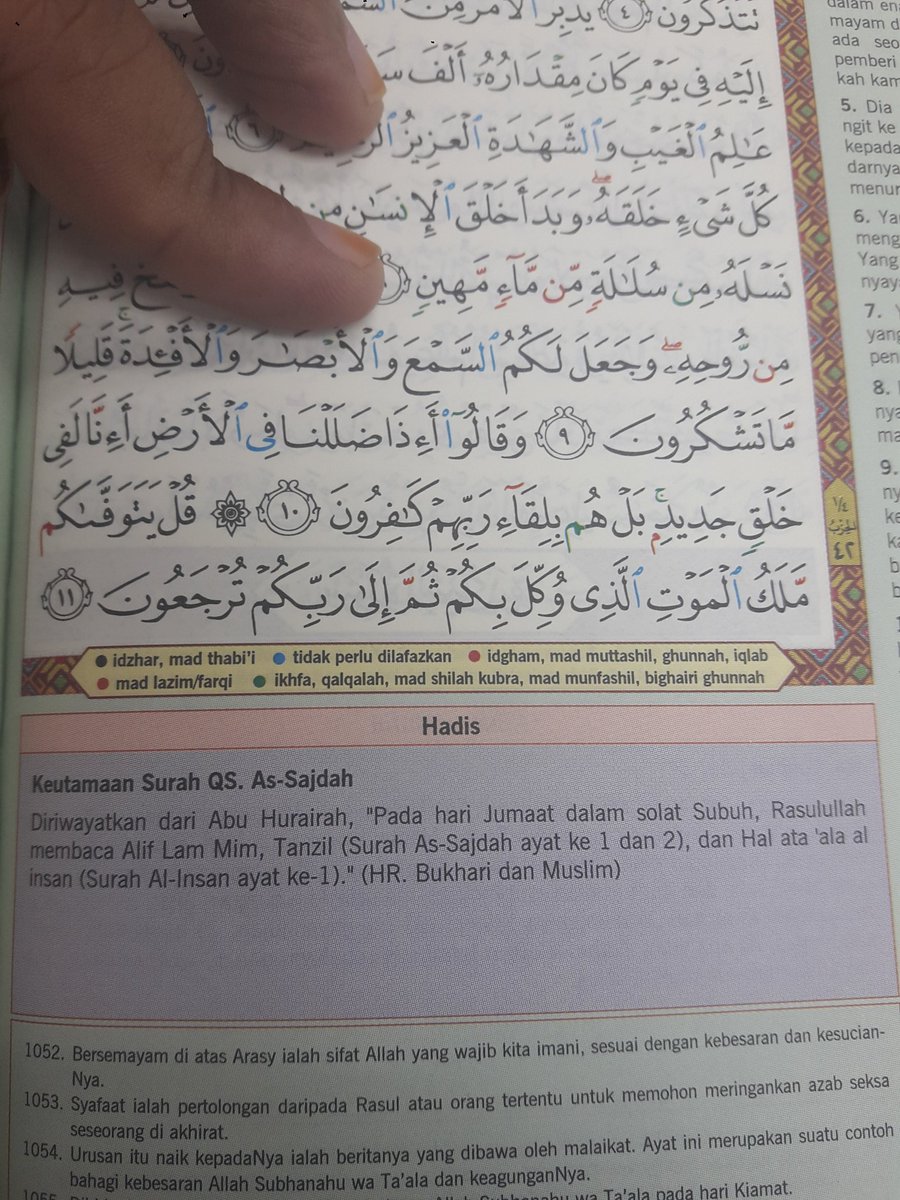 نَتَذَكَّرُونَ ٤ يُدَبِّرُ ٱلْأَمْرَ مِنَ
إِلَيْهِ فِي يَوْمٍ كَانَ مِقْدَارُهُۥٓ أَلْفَ
عَٰلِمُ ٱلْغَيْبِ وَٱلشَّهَٰدَةِ ٱلْعَزِيزُ ٦
كُلَّ شَيْءٍ خَلَقَهُۥۖ وَبَدَأَ خَلْقَ ٱلْإِنسَٰنِ مِن
نَسْلَهُۥ مِن سُلَٰلَةٍ مِّن مَّآءٍ مَّهِينٍ فِيهِ
مِن رُّوحِهِۦۖ وَجَعَلَ لَكُمُ ٱلسَّمْعَ وَٱلْأَبْصَٰرَ وَٱلْأَفْـِٔدَةَۚ قَلِيلًا
مَّا تَشْكُرُونَ ٩ وَقَالُوٓا۟ أَءِذَا ضَلَلْنَا فِى ٱلْأَرْضِ أَءِنَّا لَفِى
خَلْقٍ جَدِيدٍۭۚ بَلْ هُم بِلِقَآءِ رَبِّهِمْ كَٰفِرُونَ ١٠ ۞ قُلْ يَتَوَفَّىٰكُم
مَّلَكُ ٱلْمَوْتِ ٱلَّذِى وُكِّلَ بِكُمْ ثُمَّ إِلَىٰ رَبِّكُمْ تُرْجَعُونَ ١١
¼
الحزب
٤٢
idzhar, mad thabi'i • tidak perlu dilafazkan • idgham, mad muttashil, ghunnah, iqlab
mad lazim/farqi • ikhfa, qalqalah, mad shilah kubra, mad munfashil, bighairi ghunnah
mayam d
ada seo
pemberi
kah kam
5. Dia
ngit ke
kepada
darnya
menur
6. Ya
meng
Yang
nyaya
7.
yang
pen
8.
nya
ma
9.
Hadis
Keutamaan Surah QS. As-Sajdah
Diriwayatkan dari Abu Hurairah, "Pada hari Jumaat dalam solat Subuh, Rasulullah
membaca Alif Lam Mim, Tanzil (Surah As-Sajdah ayat ke 1 dan 2), dan Hal ata 'ala al
insan (Surah Al-Insan ayat ke-1)." (HR. Bukhari dan Muslim)
1052. Bersemayam di atas Arasy ialah sifat Allah yang wajib kita imani, sesuai dengan kebesaran dan kesucian-
Nya.
1053. Syafaat ialah pertolongan daripada Rasul atau orang tertentu untuk memohon meringankan azab seksa
seseorang di akhirat.
1054. Urusan itu naik kepadaNya ialah beritanya yang dibawa oleh malaikat. Ayat ini merupakan suatu contoh
bahagi kebesaran Allah Subhanahu wa Ta'ala dan keagunganNya.
Subhanahu wa Ta'ala pada hari Kiamat.